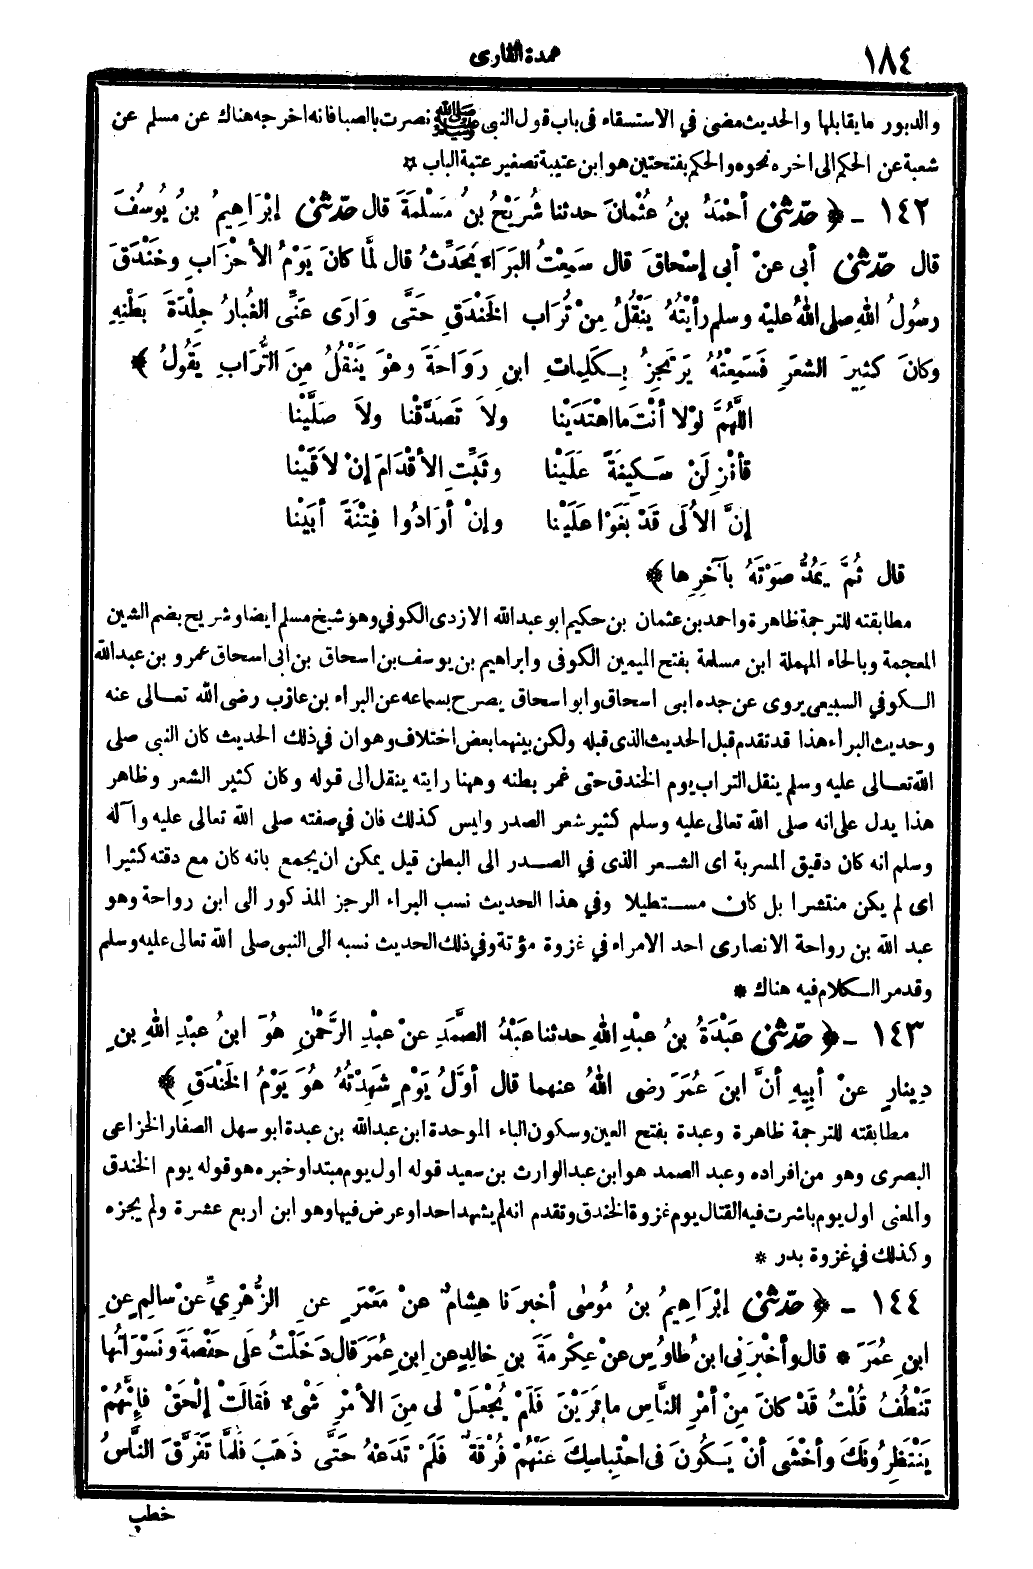 ١٨٤
عمدة القارى
والدبور ما يقابلها والحديث مضى في الاستسقاء فى باب قول النبى ﷺ نصرت بالصبا فانه اخرجه هناك عن مسلم عن
شعبة عن الحكم الى اخره نحوه والحكم بفتحتين هو ابن عتيبة تصغير عتبة الباب *
١٤٢ - ﴿ حدّثنى أحْمَدُ بنُ عُثْمانَ حدثنا شُرَيْحُ بنُ مَسْلَمَةَ قال حدّثنى إبْرَاهِيمُ بنُ يُوسُفَ
قال حدّثنى أبى عنْ أبى إسْحاقَ قال سَمِعْتُ البَرَاءَ يُحَدِّثُ قال لَمَّا كانَ يَوْمُ الأحْزَابِ وخَنْدَقَ
رسُولُ اللهِ صلى اللهُ عليْه وسلم رأيْتُهُ يَنْقُلُ مِنْ تُرَابِ الخَنْدَقِ حَتَّى وَارَى عَنِّى الغُبارُ جِلْدَةَ بَطْنِهِ
وكانَ كَثِيرَ الشعَرِ فَسَمِعْتُهُ يَرْتَجِزُ بِكَلِماتِ ابنِ رَوَاحَةَ وهْوَ يَنْقُلُ مِنَ التُّرَابِ يَقُولُ ﴾
اللَّهُمَّ لوْلا أنْتَ ما اهْتَدَيْنا ولاَ تَصَدَّقْنا ولاَ صَلَّيْنا
فأنْزِلَنْ سَكِينَةً عَلَيْنا وثَبِّتِ الأقْدَامَ إنْ لاَقَيْنا
إنَّ الأُلَى قَدْ بَغَوْا عَلَيْنا وإنْ أرَادُوا فِتْنَةً أبَيْنا
قال ثُمَّ يَمُدُّ صَوْتَهُ بآخِرِها ﴾
مطابقته للترجمة ظاهرة واحمد بن عثمان بن حكيم ابو عبد الله الازدى الكوفي وهو شيخ مسلم أيضا وشريح بضم الشين
المعجمة وبالحاء المهملة ابن مسلمة بفتح الميمين الكوفى وابراهيم بن يوسف بن اسحاق بن ابى اسحاق عمرو بن عبد الله
الكوفي السبيعى يروى عن جده ابى اسحاق وابو اسحاق يصرح بسماعه عن البراء بن عازب رضى الله تعالى عنه
وحديث البراء هذا قد تقدم قبل الحديث الذى قبله ولكن بينهما بعض اختلاف وهو ان في ذلك الحديث كان النبى صلى
الله تعالى عليه وسلم ينقل التراب يوم الخندق حتى غمر بطنه وههنا رايته ينقل الى قوله وكان كثير الشعر وظاهر
هذا يدل على انه صلى الله تعالى عليه وسلم كثير شعر الصدر وليس كذلك فان في صفته صلى الله تعالى عليه وآله
وسلم انه كان دقيق المسربة اى الشعر الذى في الصدر الى البطن قيل يمكن ان يجمع بانه كان مع دقته كثيرا
اى لم يكن منتشرا بل كان مستطيلا وفي هذا الحديث نسب البراء الرجز المذكور الى ابن رواحة وهو
عبد الله بن رواحة الانصارى احد الامراء في غزوة مؤتة وفي ذلك الحديث نسبه الى النبى صلى الله تعالى عليه وسلم
وقد مر الكلام فيه هناك *
١٤٣ - ﴿ حدّثنى عَبْدَةُ بنُ عبْدِ اللهِ حدثنا عَبْدُ الصَّمَدِ عنْ عبْدِ الرَّحْمٰنِ هُوَ ابنُ عبْدِ اللهِ بنِ
دِينارٍ عنْ أبِيهِ أنَّ ابنَ عُمَرَ رضى اللهُ عنهما قال أوَّلُ يَوْمٍ شَهِدْتُهُ هُوَ يَوْمُ الخَنْدَقِ ﴾
مطابقته للترجمة ظاهرة وعبدة بفتح العين وسكون الباء الموحدة ابن عبد الله بن عبدة ابو سهل الصفار الخزاعى
البصرى وهو من افراده وعبد الصمد هو ابن عبد الوارث بن سعيد قوله اول يوم مبتدا وخبره هو قوله يوم الخندق
والمعنى اول يوم باشرت فيه القتال يوم غزوة الخندق وتقدم انه لم يشهد احدا وعرض فيها وهو ابن اربع عشرة ولم يجزه
وكذلك في غزوة بدر *
١٤٤ - ﴿ حدّثنى إبْرَاهِيمُ بنُ مُوسَى أخبرَنا هِشامٌ عنْ مَعْمَرٍ عنِ الزُّهْرِيِّ عنْ سالِمٍ عنِ
ابنِ عُمَرَ * قال وأخْبَرَنِى ابنُ طاوُسٍ عنْ عِكْرِمَةَ بنِ خالِدٍ عنِ ابنِ عُمَرَ قال دَخَلْتُ علَى حَفْصَةَ ونَسْوَاتُها
تَنْطُفُ قُلْتُ قَدْ كانَ مِنْ أمْرِ النَّاسِ ما تَرَيْنَ فَلَمْ يُجْعَلْ لى مِنَ الأمْرِ شَىْءٌ فَقالَتْ إلْحَقْ فإنَّهُمْ
يَنْتَظِرُونَكَ وأخْشَى أنْ يَكُونَ فى احْتِباسِكَ عَنْهُمْ فُرْقَةٌ فَلَمْ تَدَعْهُ حَتَّى ذَهَبَ فَلَمَّا تَفَرَّقَ النَّاسُ
خطب